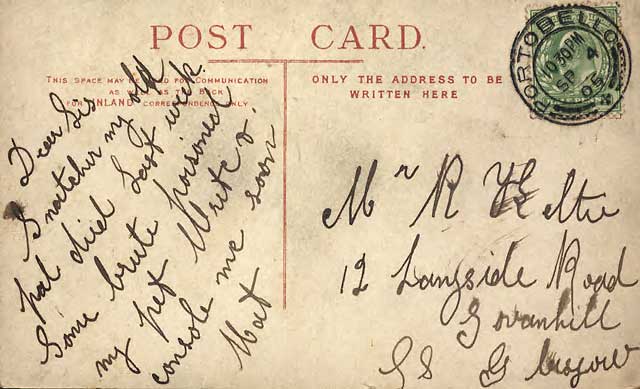 POST CARD.
THIS SPACE MAY BE USED FOR COMMUNICATION
AS WELL AS THE BACK
FOR INLAND CORRESPONDENCE ONLY
ONLY THE ADDRESS TO BE
WRITTEN HERE
PORTOBELLO
10 30 PM
SP 4
05
Dear Sir
Snatcher my old
pal died last week.
Some brute poisoned
my pet Write &
console me soon
Mat
Mr R Keltie
12 Langside Road
Govanhill
SS Glasgow